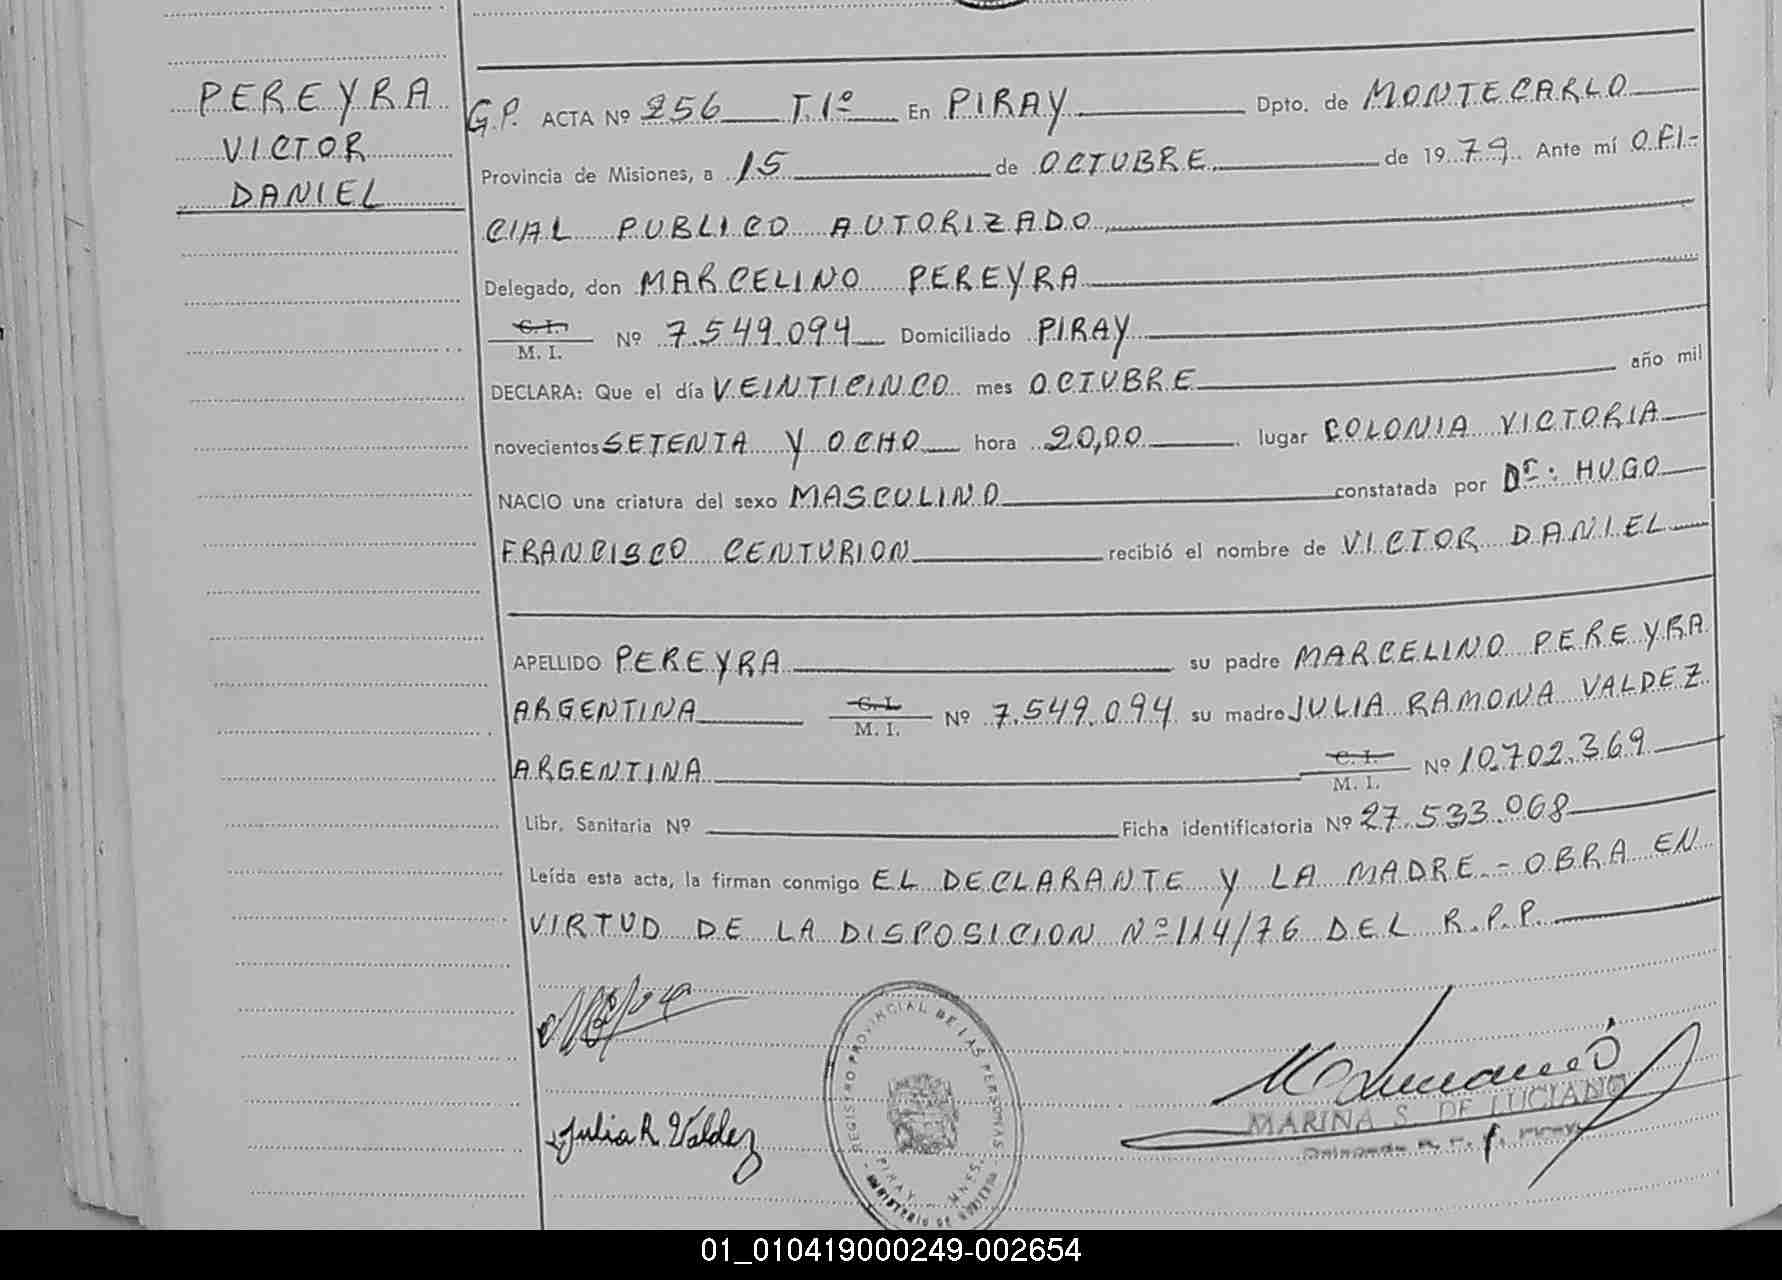 PEREYRA
VICTOR
DANIEL
G.P. ACTA Nº 256 T.1º En PIRAY Dpto. de MONTECARLO
Provincia de Misiones, a 15 de OCTUBRE de 1979. Ante mí OFI-
CIAL PUBLICO AUTORIZADO
Delegado, don MARCELINO PEREYRA
C. I.
M. I. Nº 7.549.094 Domiciliado PIRAY
DECLARA: Que el día VEINTICINCO mes OCTUBRE año mil
novecientos SETENTA Y OCHO hora 20,00 lugar COLONIA VICTORIA
NACIO una criatura del sexo MASCULINO constatada por Dr: HUGO
FRANCISCO CENTURION recibió el nombre de VICTOR DANIEL
APELLIDO PEREYRA su padre MARCELINO PEREYRA
ARGENTINA C. I. M. I. Nº 7.549.094 su madre JULIA RAMONA VALDEZ
ARGENTINA C. I. M. I. Nº 10.702.369
Libr. Sanitaria Nº Ficha identificatoria Nº 27.533.068
Leída esta acta, la firman conmigo EL DECLARANTE Y LA MADRE - OBRA EN
VIRTUD DE LA DISPOSICION Nº 114/76 DEL R.P.P.
Julia R. Valdez
REGISTRO PROVINCIAL DE LAS PERSONAS
PIRAY MNES.
MINISTERIO DE GOBIERNO
MARINA S. DE LUCIANO
Piray
01_010419000249-002654